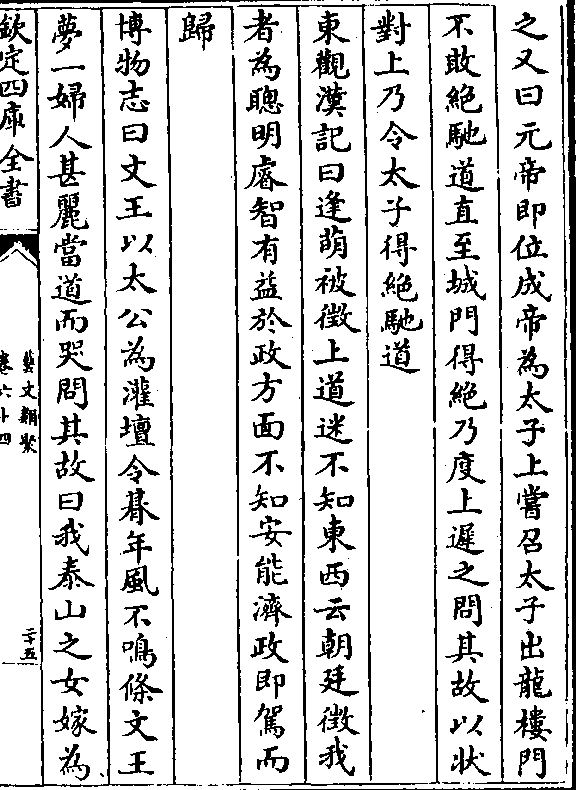 之又曰元帝即位成帝為太子上嘗召太子出龍樓門
不敢絕馳道直至城門得絕乃度上遲之問其故以狀
對上乃令太子得絕馳道
東觀漢記曰逢萌被徵上道迷不知東西云朝廷徵我
者為聰明睿智有益於政方面不知安能濟政即駕而
歸
博物志曰文王以太公為灌壇令朞年風不鳴條文王
夢一婦人甚麗當道而哭問其故曰我泰山之女嫁為
欽定四庫全書
藝文類聚
卷六十四
二十五